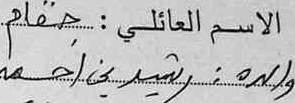 الاسم العائلي : جنفام
والده : رشيد بن احمد